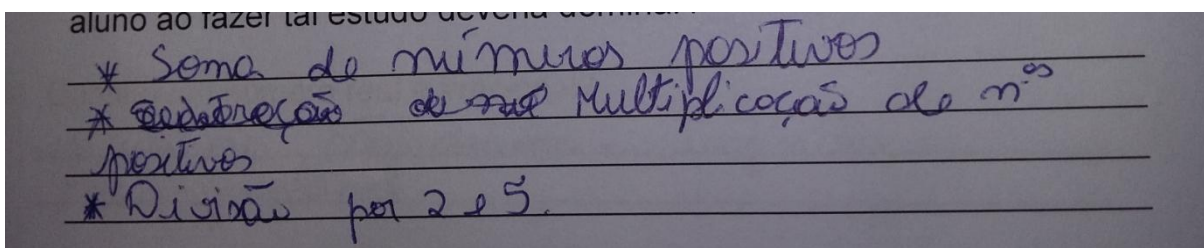 aluno ao fazer tal estudo deveria
* Soma de números positivos
* Multiplicação de nºs
positivos
* Divisão por 2 e 5.